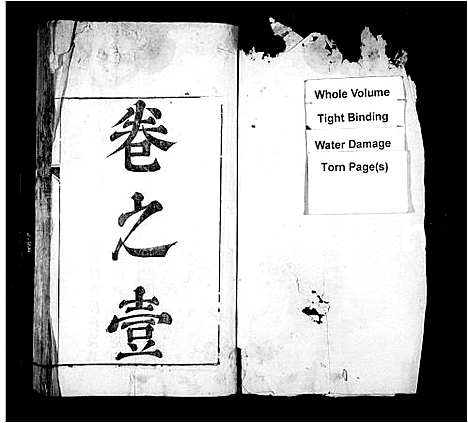 卷之壹
Whole Volume
Tight Binding
Water Damage
Torn Page(s)